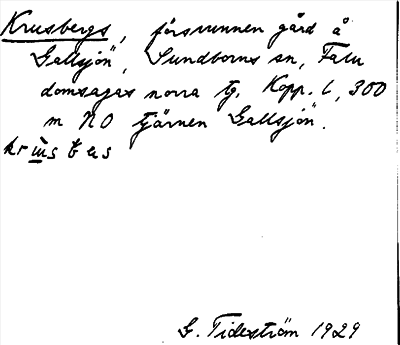 Krusbergs, försvunnen gård å
Gallsjön", Sundborns sn, Falu
domsagas norra tg. Kopp. l, 300
m NO tjärnen Gallsjön".
G. Tideström 1929